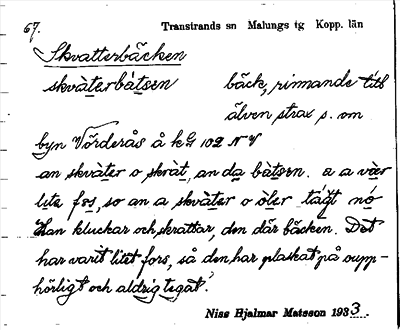 67.
Transtrands sn Malungs tg Kopp. län
Skvatterbäcken
skvàterbàtsen bäck, rinnande till
älven strax s. om
byn Vörderås å kG 102 NV
an skvàter o skràt, an da bàtsen. a a vær
lite fos, so an a skvàter o òler tágt nó
Han kluckar och skrattar, den där bäcken. Det
har varit litet fors, så den har plaskat på oupp-
hörligt och aldrig tegat.
Niss Hjalmar Matsson 1933.